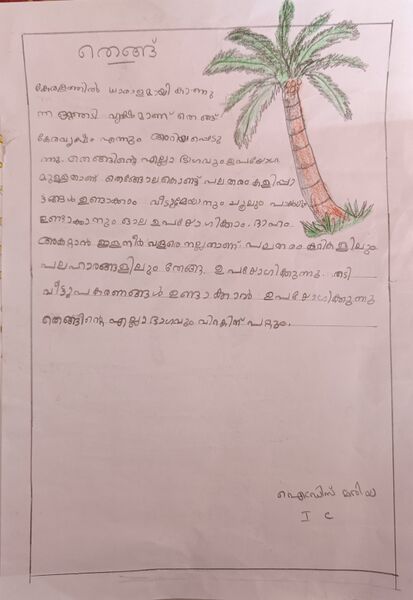 തെങ്ങ്
കേരളത്തിൽ ധാരാളമായി കാണു
ന്ന ഒറ്റത്തടി വൃക്ഷമാണ് തെങ്ങ്
കേരവൃക്ഷം എന്നും അറിയപ്പെടു
ന്നു. തെങ്ങിന്റെ എല്ലാ ഭാഗവും ഉപയോഗ
മുള്ളതാണ് തെങ്ങോലകൊണ്ട് പലതരം കളിപ്പാ
ട്ടങ്ങൾ ഉണ്ടാക്കാം. വീടുമേയാനും ചൂലും
ഉണ്ടാക്കാനും ഓല ഉപയോഗിക്കാം. ദാഹം
അകറ്റാൻ ഇളനീർ വളരെ നല്ലതാണ്. പലതരം കറികളിലും
പലഹാരങ്ങളിലും തേങ്ങ ഉപയോഗിക്കുന്നു. തടി
വീട്ടുപകരണങ്ങൾ ഉണ്ടാക്കാൻ ഉപയോഗിക്കുന്നു
തെങ്ങിന്റെ എല്ലാഭാഗവും വിറകിന് പറ്റും.
മരിയ
I C